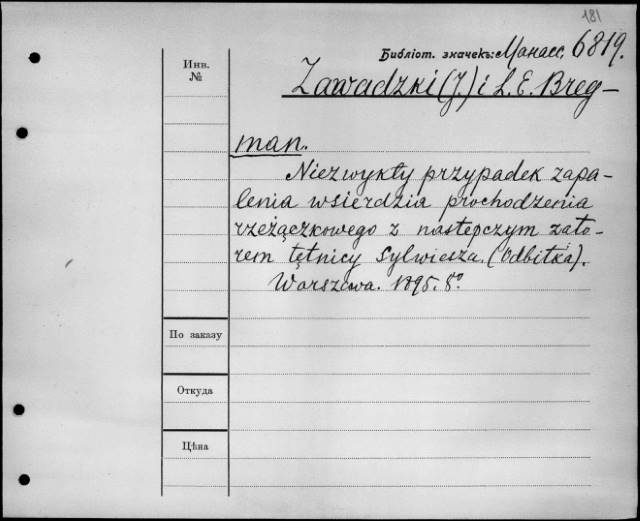 181
Библіот. значекъ: Манасс. 6819.
Инв.
№
Zawadzki (J.) i L. E. Breg-
man.
Niezwykły przypadek zapa-
lenia wsierdzia prochodzenia
rzeżączkowego z następczym zato-
rem tętnicy Sylwiesza. (Odbitka).
Warszawa. 1895. 8°
По заказу
Откуда
Цѣна